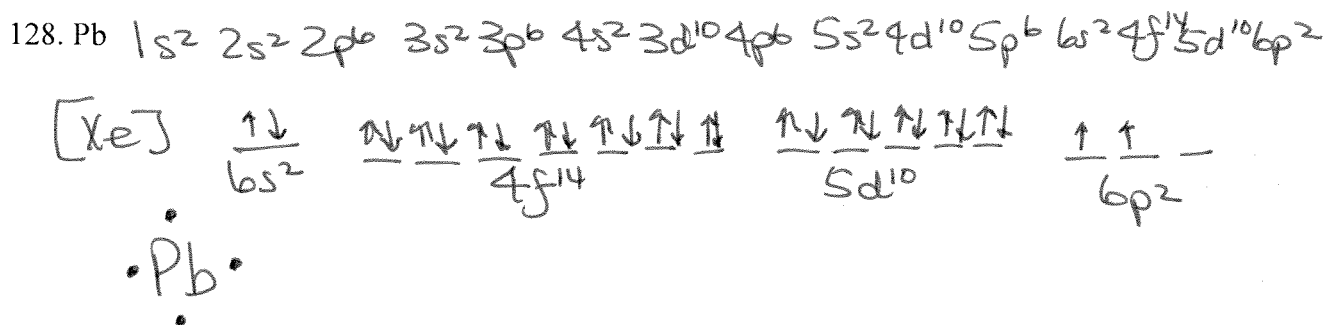 128. Pb 1s² 2s² 2p⁶ 3s² 3p⁶ 4s² 3d¹⁰ 4p⁶ 5s² 4d¹⁰ 5p⁶ 6s² 4f¹⁴ 5d¹⁰ 6p²
[Xe] ↑↓ ↑↓ ↑↓ ↑↓ ↑↓ ↑↓ ↑↓ ↑↓ ↑↓ ↑↓ ↑↓ ↑↓ ↑↓ ↑ ↑
6s² 4f¹⁴ 5d¹⁰ 6p²
·Pb·